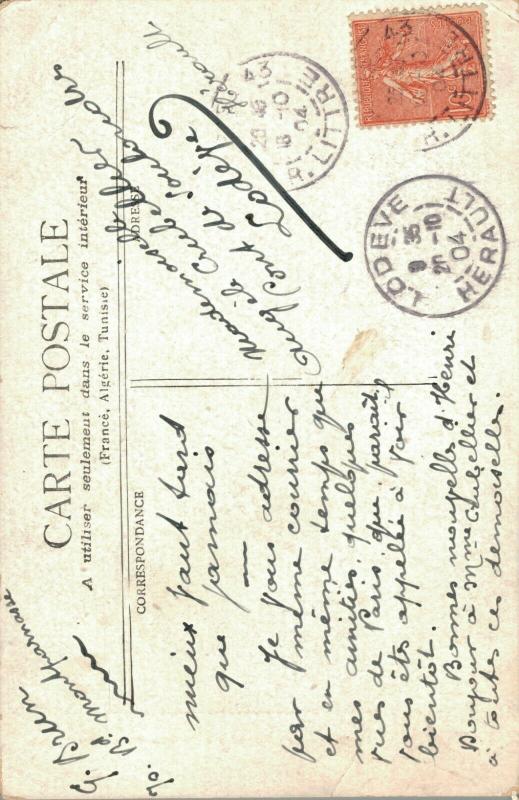 CARTE POSTALE
A utiliser seulement dans le service intérieur
(France, Algérie, Tunisie)
CORRESPONDANCE
ADRESSE
mieux vaut tard
que jamais
—
Je vous adresse
par même courrier
et en même temps que
mes amitiés, quelques
vues de Paris que, paraît,
vous êtes appellée à voir
bientôt.
Bonnes nouvelles d'Henri
Bonjour à Mme et
à toutes ces demoiselles.
Mademoiselle
Pont de
Lodève
Hérault
G.
70. Bd. Montparnasse
REPUBLIQUE FRANÇAISE
POSTES
10
R. LITTRE
18 -10
04
43
LODEVE
9 35
20 -10
04
HERAULT